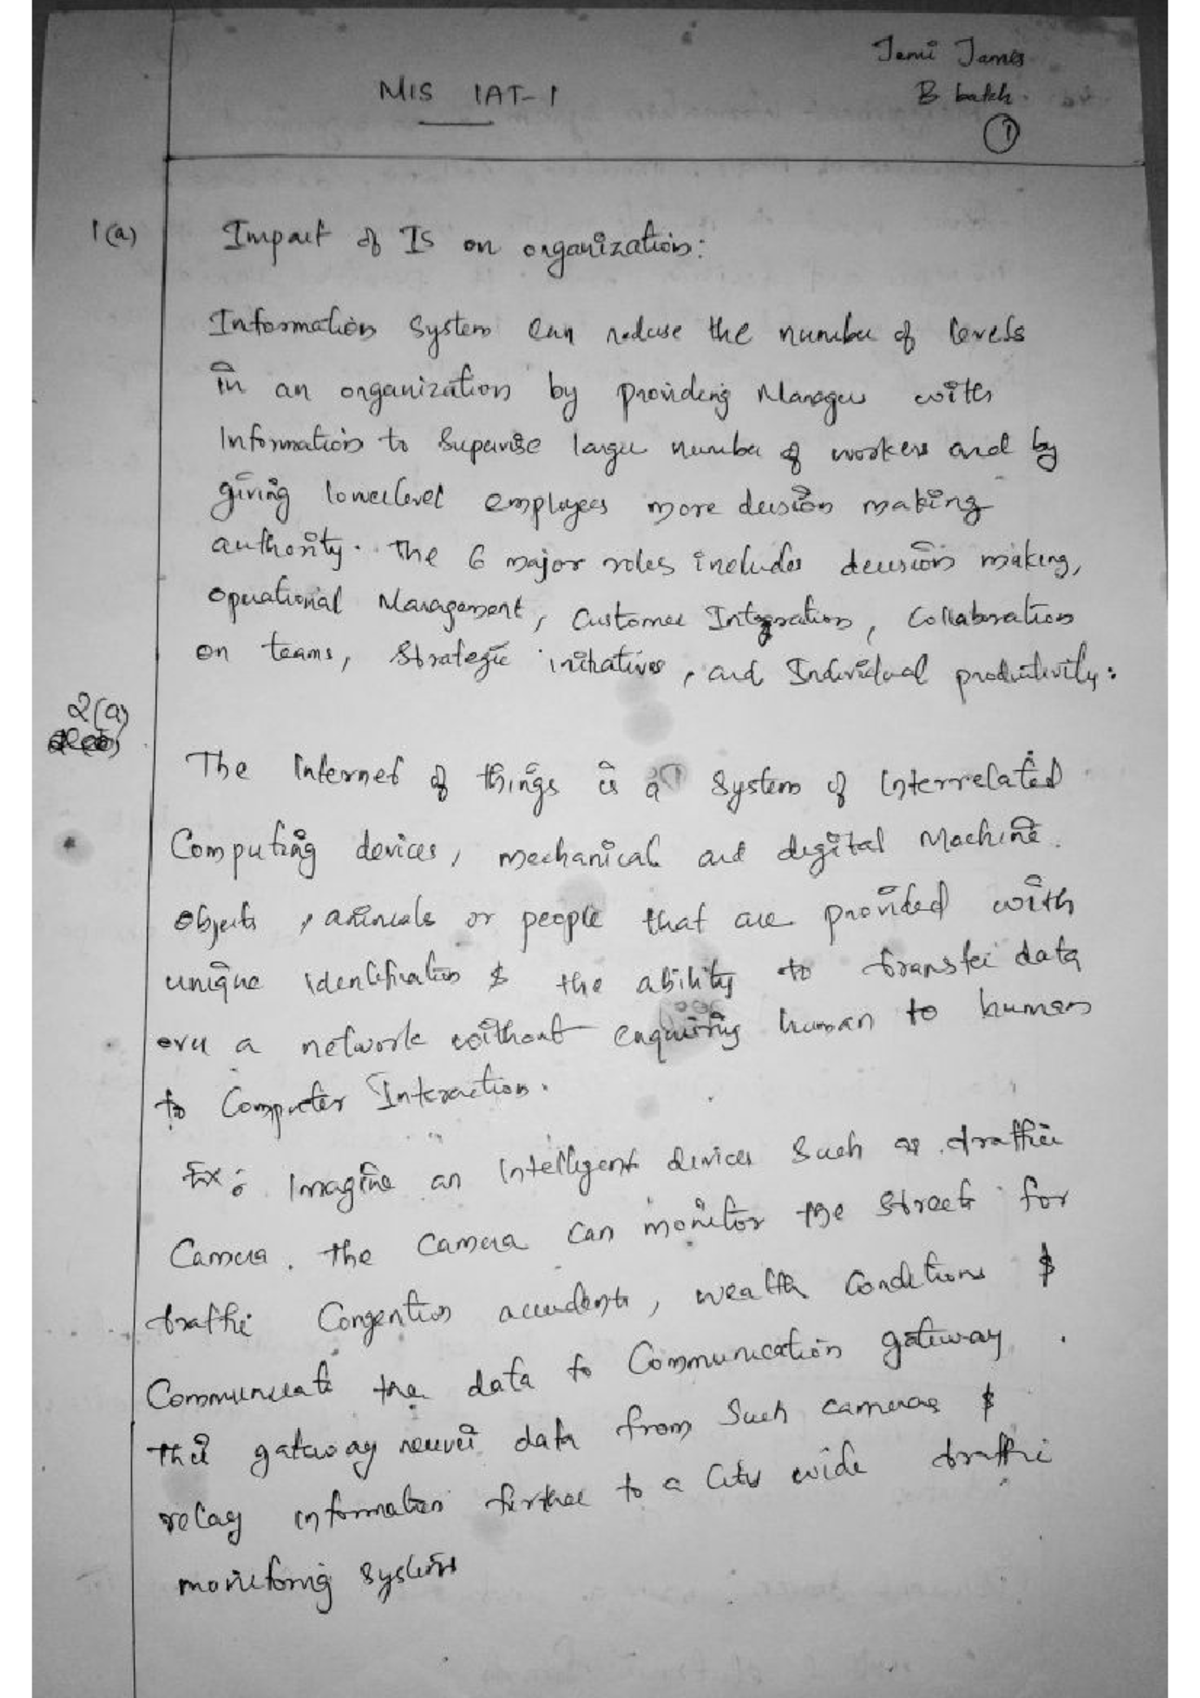 Jemi James
MIS IAT-1
B batch.
1
1(a)
Impact of IS on organization:
Information System can reduse the number of levels
in an organization by providing Manager with
Information to Supervise large number of workers and by
giving lowerlevel employees more decision making
authority. The 6 major roles includes decision making,
operational Management, Customer Integration, Collaboration
on teams, Strategic initiatives, and Individual productivity:
2(a)
The Internet of things is a System of Interrelated
Computing devices, mechanical and digital Machine.
objects, animals or people that are provided with
unique identification & the ability to transfer data
over a network without enquiring human to human
to Computer Interaction.
Ex: Imagine an Intelligent devices Such as traffic
Camera. The camera can monitor the streets for
traffic Congention accidents, wealth Conditions &
Communicate the data to Communication gateway.
The gateway receives data from Such cameras &
relay information further to a City wide traffic
monitoring system